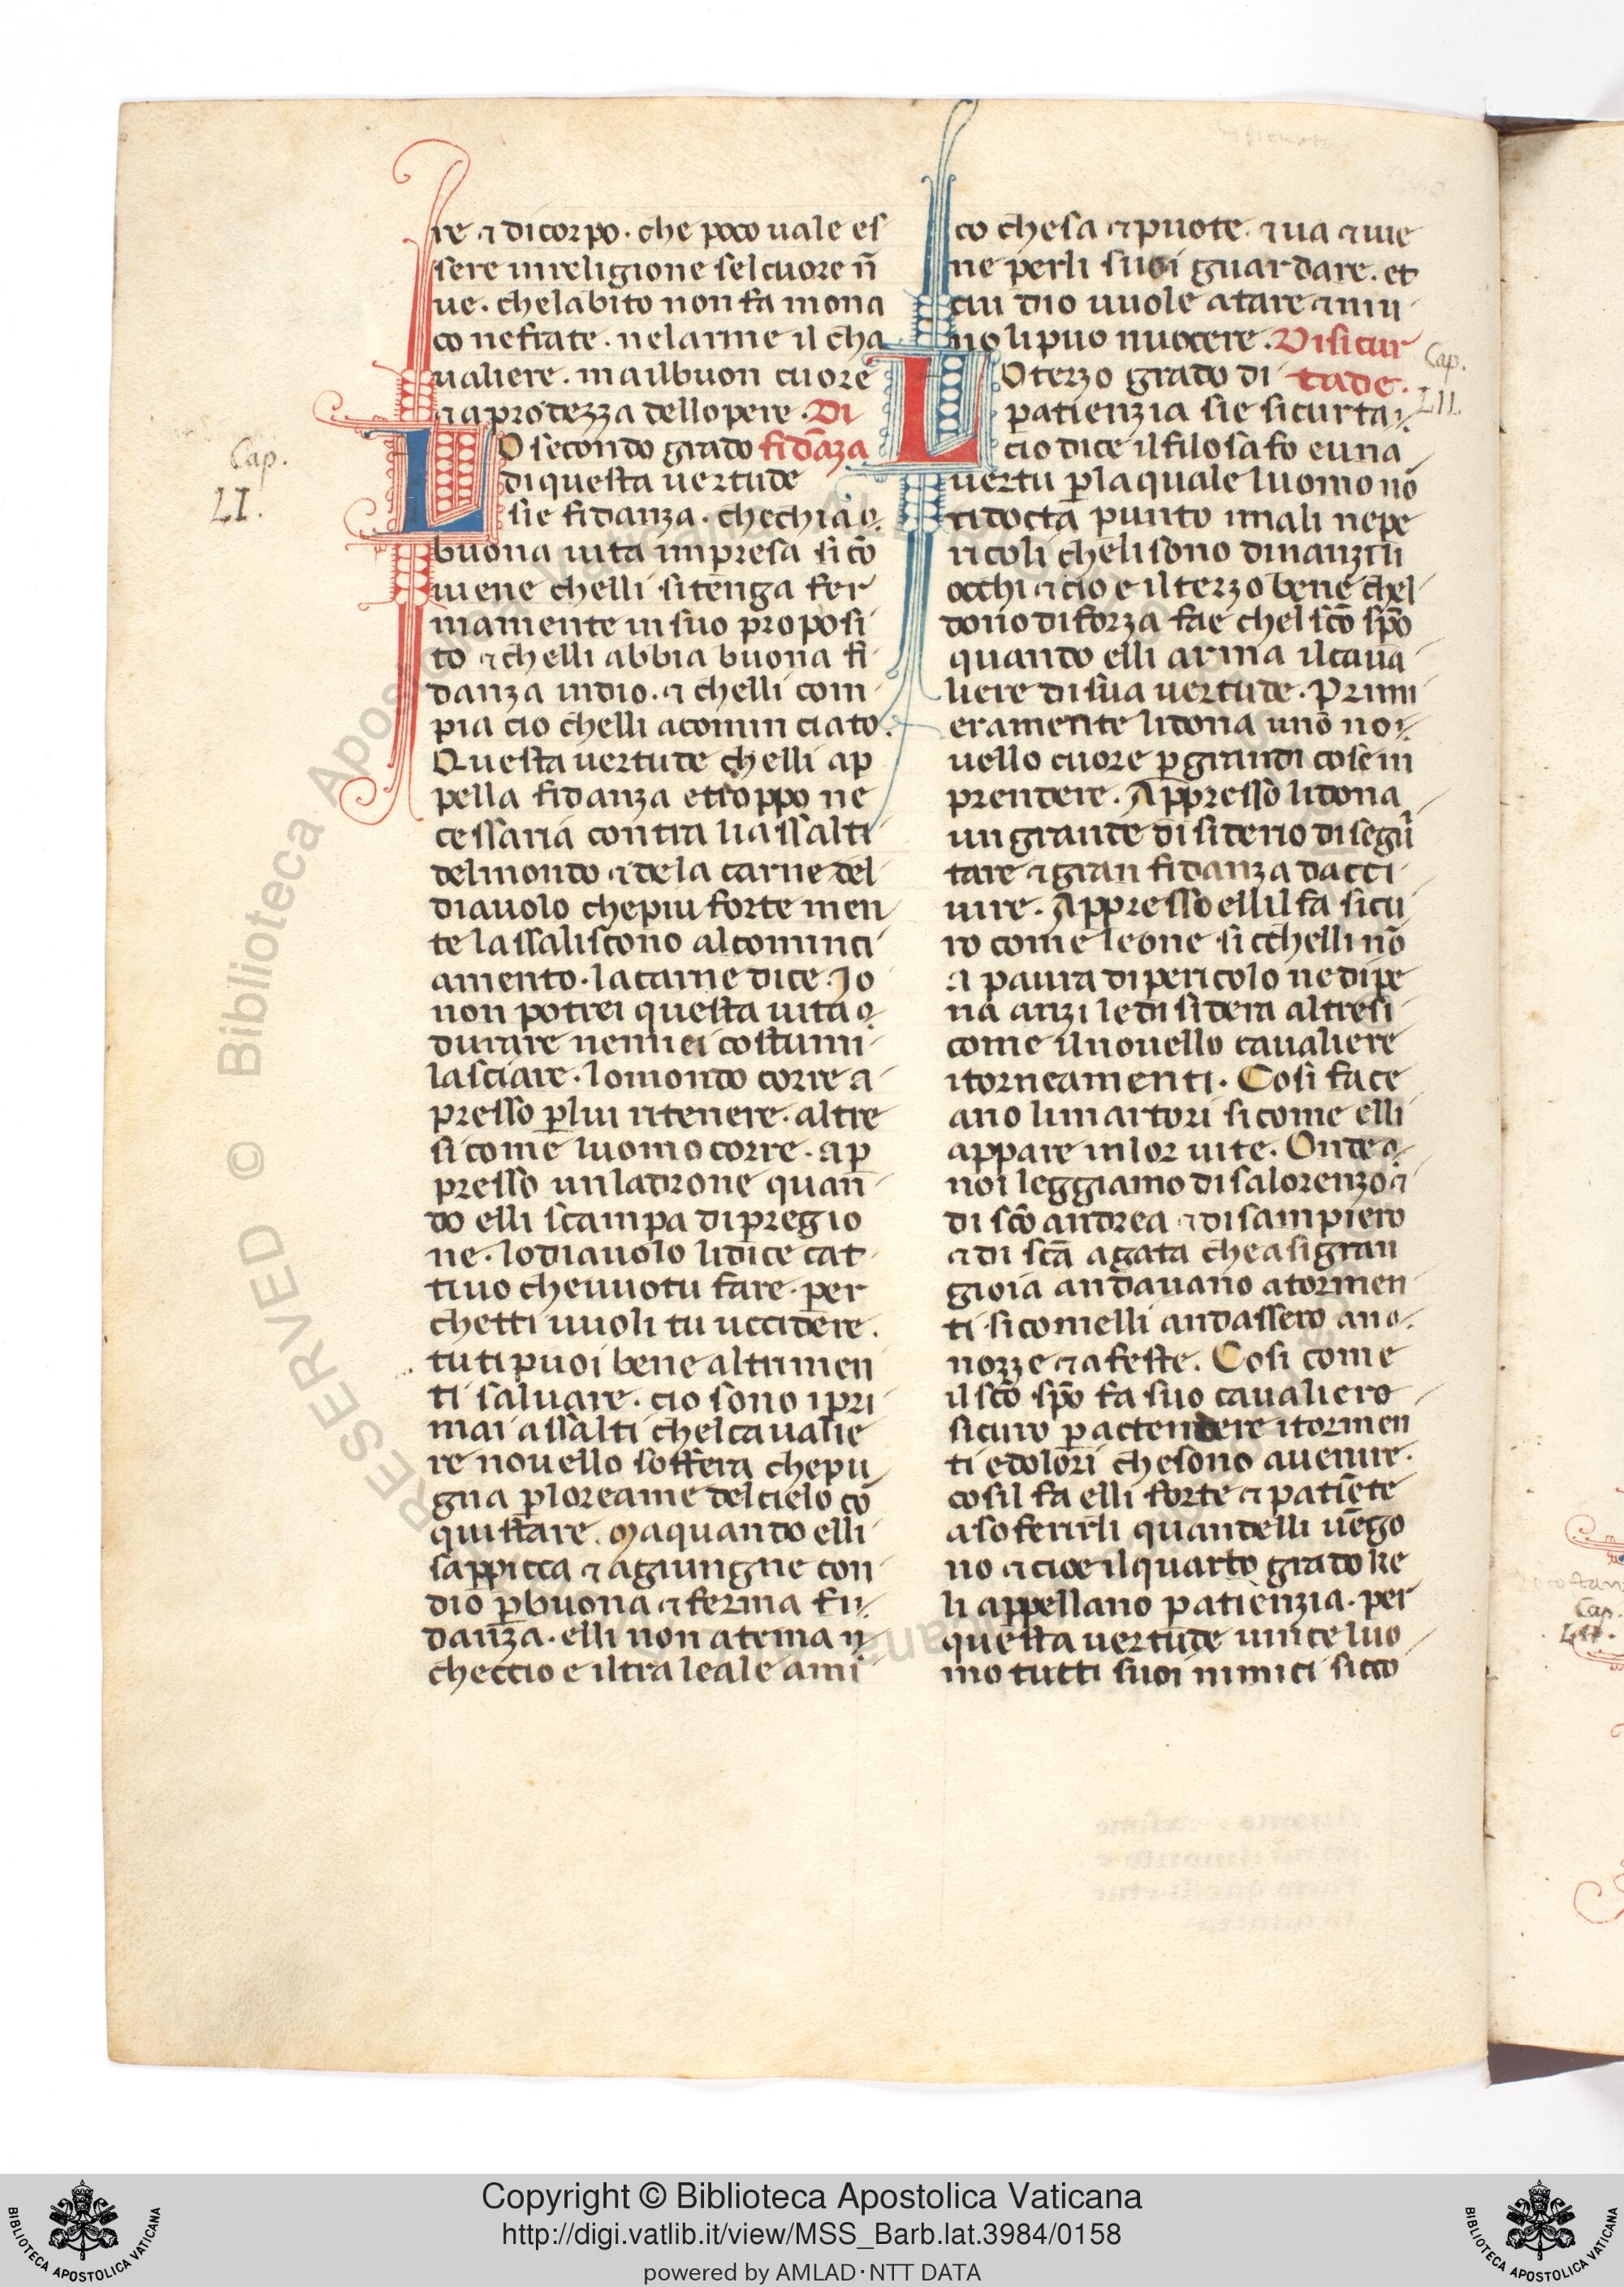 re ⁊ dicorpo · che poco uale es
sere inreligione selcuore n̄
ue · chelabito non fa mona
co nefrate · nelarme il cha
ualiere · mailbuon cuore
⁊ a prodezza dellopere · Di
LO secondo grado fidāza
di questa uertude
sie fidanza · chechia
buona uita impresa si cō
uiene chelli sitenga fer
mamente insuo proposi
to ⁊ chelli abbia buona fi
danza indio · ⁊ chelli com
pia cio chelli acomin ciato ·
Questa uertude chelli ap
pella fidanza etroppo ne
cessaria contra liassalti
delmondo ⁊ dela carne del
diauolo chepiu forte men
te lassaliscono alcominci
amento · lacarne dice · Io
non potrei questa uita
durare nemiei costumi
lasciare · lomondo corre a
presso ꝑlui ritenere · altre
si come luomo corre · ap
presso unladrone quan
do elli scampa dipregio
ne · lodiauolo lidice cat
tiuo cheuuotu fare · per
chetti uuoli tu uccidere ·
tu ti puoi bene altrimen
ti saluare · cio sono i pri
mai assalti chelcaualie
re nouello soffera chepu
gna ꝑloreame delcielo cō
quistare · Maquando elli
sappicca ⁊ agiungne con
dio ꝑbuona ⁊ ferma fi
danza · elli non atema
checcio e iltra leale ami
co chesa ⁊ puote · ⁊ ua ⁊ uie
ne perli suoi guardare · et
cui dio uuole atare ⁊ niu
no lipuo nuocere · Disicur
LO terzo grado di tade ·
patienzia sie sicurta
cio dice ilfilosafo euna
uertu ꝑlaquale luomo nō
ridocta punto imali nepe
ricoli chelisono dinanzili
occhi ⁊ cio e ilterzo bene chel
dono diforza fae chel sc̄o sp̄o
quando elli arma ilcaua
liere disua uertude · Primi
eramente lidona uno no
uello cuore ꝑgrandi cosein
prendere · Appresso lidona
ungrande disiderio disegui
tare ⁊ gran fidanza dacci
uire · Appresso ellil fa sicu
ro come leone si cchelli nō
a paura dipericolo nedipe
na anzi ledisidera altresi
come ilnouello caualiere
itorneamenti · Cosi face
ano limartori sicome elli
appare inlor uite · Onde
noi leggiamo disalorenzo ⁊
di sc̄o andrea ⁊ disampiero
⁊ di sc̄a agata cheasigran
gioia andauano atormen
ti sicomelli andassero ano
nozze ⁊ afeste · Cosi come
il sc̄o sp̄o fa suo caualiero
sicuro ꝑactendere itormen
ti edolori chesono auenire ·
cosil fa elli forte ⁊ patiēte
asoferirli quandelli uēgo
no ⁊ cioe ilquarto grado ke
li appellano patienzia · per
questa uertude uince luo
mo tutti suoi nimici sicco
Cap.
LI.
Cap.
LII.
Cap.
© Biblioteca Apostolica Vaticana
RESERVED
Copyright © Biblioteca Apostolica Vaticana
http://digi.vatlib.it/view/MSS_Barb.lat.3984/0158
powered by AMLAD·NTT DATA
BIBLIOTECA APOSTOLICA VATICANA
BIBLIOTECA APOSTOLICA VATICANA